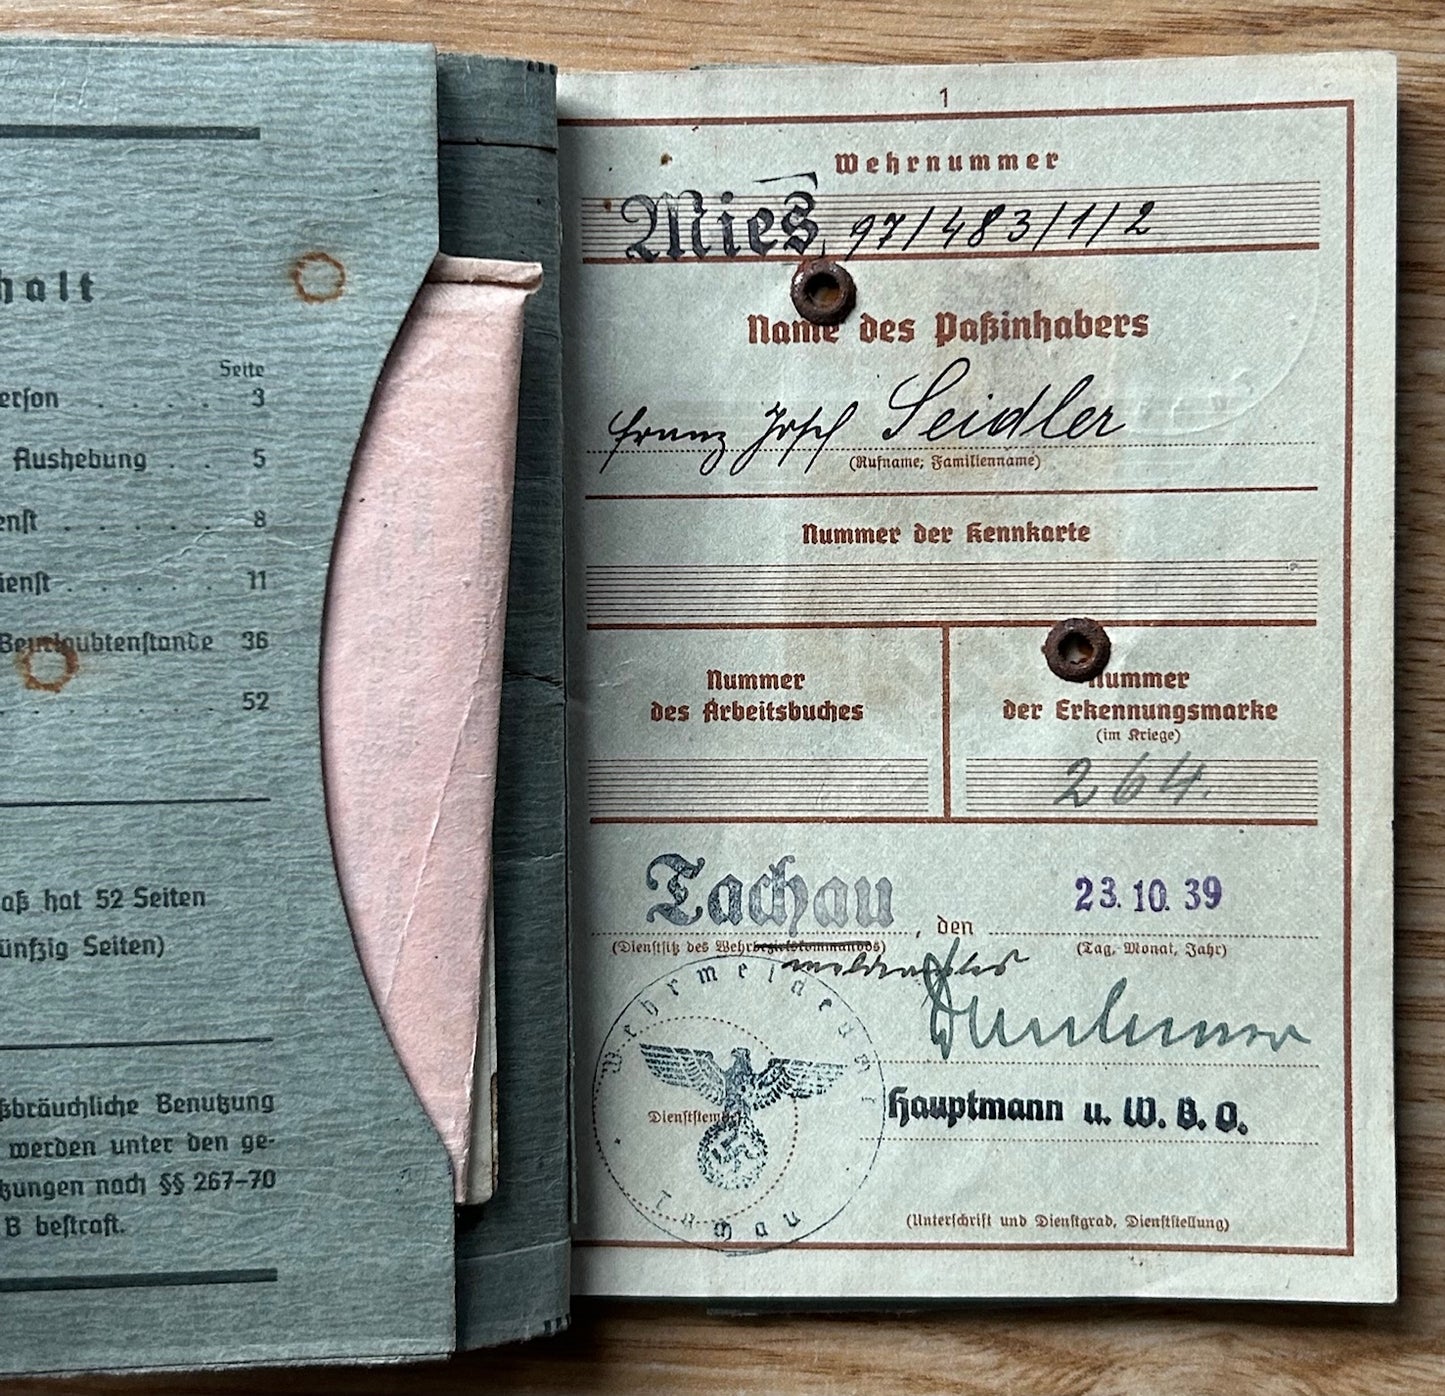 halt
Seite
erson . . . . . 3
Aushebung . . 5
enst . . . . . 8
ienst . . . . . 11
Beurlaubtenstande 36
. . . . . 52
aß hat 52 Seiten
ünfzig Seiten)
ßbräuchliche Benutzung
werden unter den ge-
tzungen nach §§ 267–70
B bestraft.
1
Wehrnummer
Mies, 97/483/1/2
Name des Paßinhabers
Franz Josef Seidler
(Rufname; Familienname)
Nummer der Kennkarte
Nummer
des Arbeitsbuches
Nummer
der Erkennungsmarke
(im Kriege)
264.
Tachau, den 23. 10. 39
(Dienstsitz des Wehrbezirkskommandos) (Tag, Monat, Jahr)
meldeamtes
Wehrmeldeamt
Dienststempel
Tachau
Hauptmann u. W. B. O.
(Unterschrift und Dienstgrad, Dienststellung)